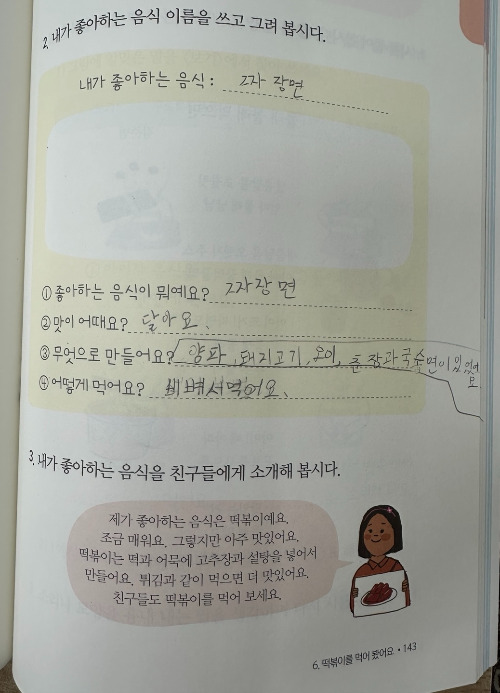 2. 내가 좋아하는 음식 이름을 쓰고 그려 봅시다.
내가 좋아하는 음식 : 짜장면
① 좋아하는 음식이 뭐예요? 짜장면
② 맛이 어때요? 달아요.
③ 무엇으로 만들어요? 양파, 돼지고기, 오이, 춘장과 국수
④ 어떻게 먹어요? 비벼서먹어요.
3. 내가 좋아하는 음식을 친구들에게 소개해 봅시다.
제가 좋아하는 음식은 떡볶이예요.
조금 매워요. 그렇지만 아주 맛있어요.
떡볶이는 떡과 어묵에 고추장과 설탕을 넣어서
만들어요. 튀김과 같이 먹으면 더 맛있어요.
친구들도 떡볶이를 먹어 보세요.
6. 떡볶이를 먹어 봤어요 • 143